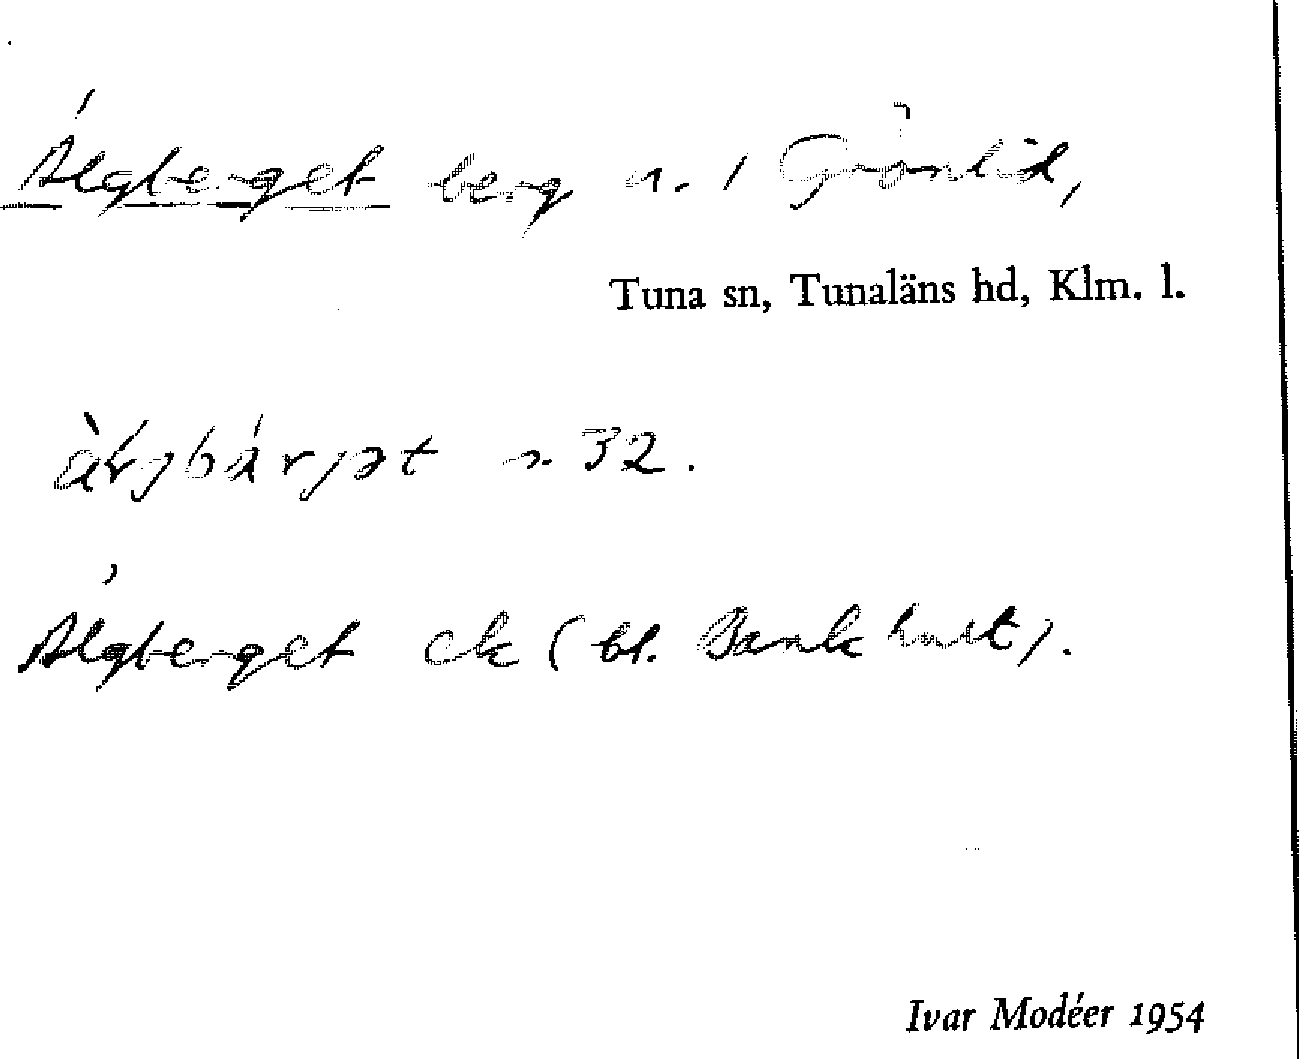 Älgberget berg n. 1 Grönlid,
Tuna sn, Tunaläns hd, Klm. l.
s. 32.
Älgberget ek (bl. Bankhult).
Ivar Modéer 1954